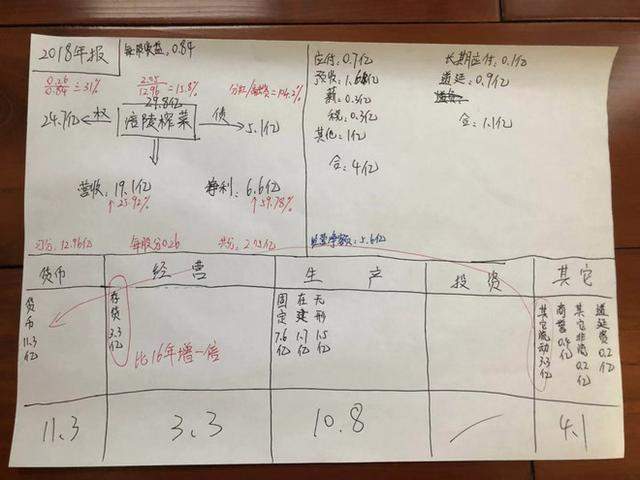 2018年报
每股收益:0.84
0.26/0.84=31%
12.96=15.8%
分红/融资=142%
29.8亿
24.7亿 ← 权 涪陵榨菜 债 → 5.1亿
营收:19.1亿 净利:6.6亿
↑25.92% ↑59.78%
未分:12.96亿 每股分0.26 共分:2.05亿 经营净额:5.6亿
应付:0.7亿
预收:1.6亿
薪:0.3亿
税:0.3亿
其他:1亿
合:4亿
长期应付:0.1亿
递延:0.9亿
合:1.1亿
货币 经营 生产 投资 其它
货币11.3亿
存货3.3亿
比16年增一倍
固定7.6亿
在建1.7亿
无形1.5亿
其它流动3.3亿
商誉0.4亿
其它非流0.2亿
递延资0.2亿
11.3 3.3 10.8 4.1